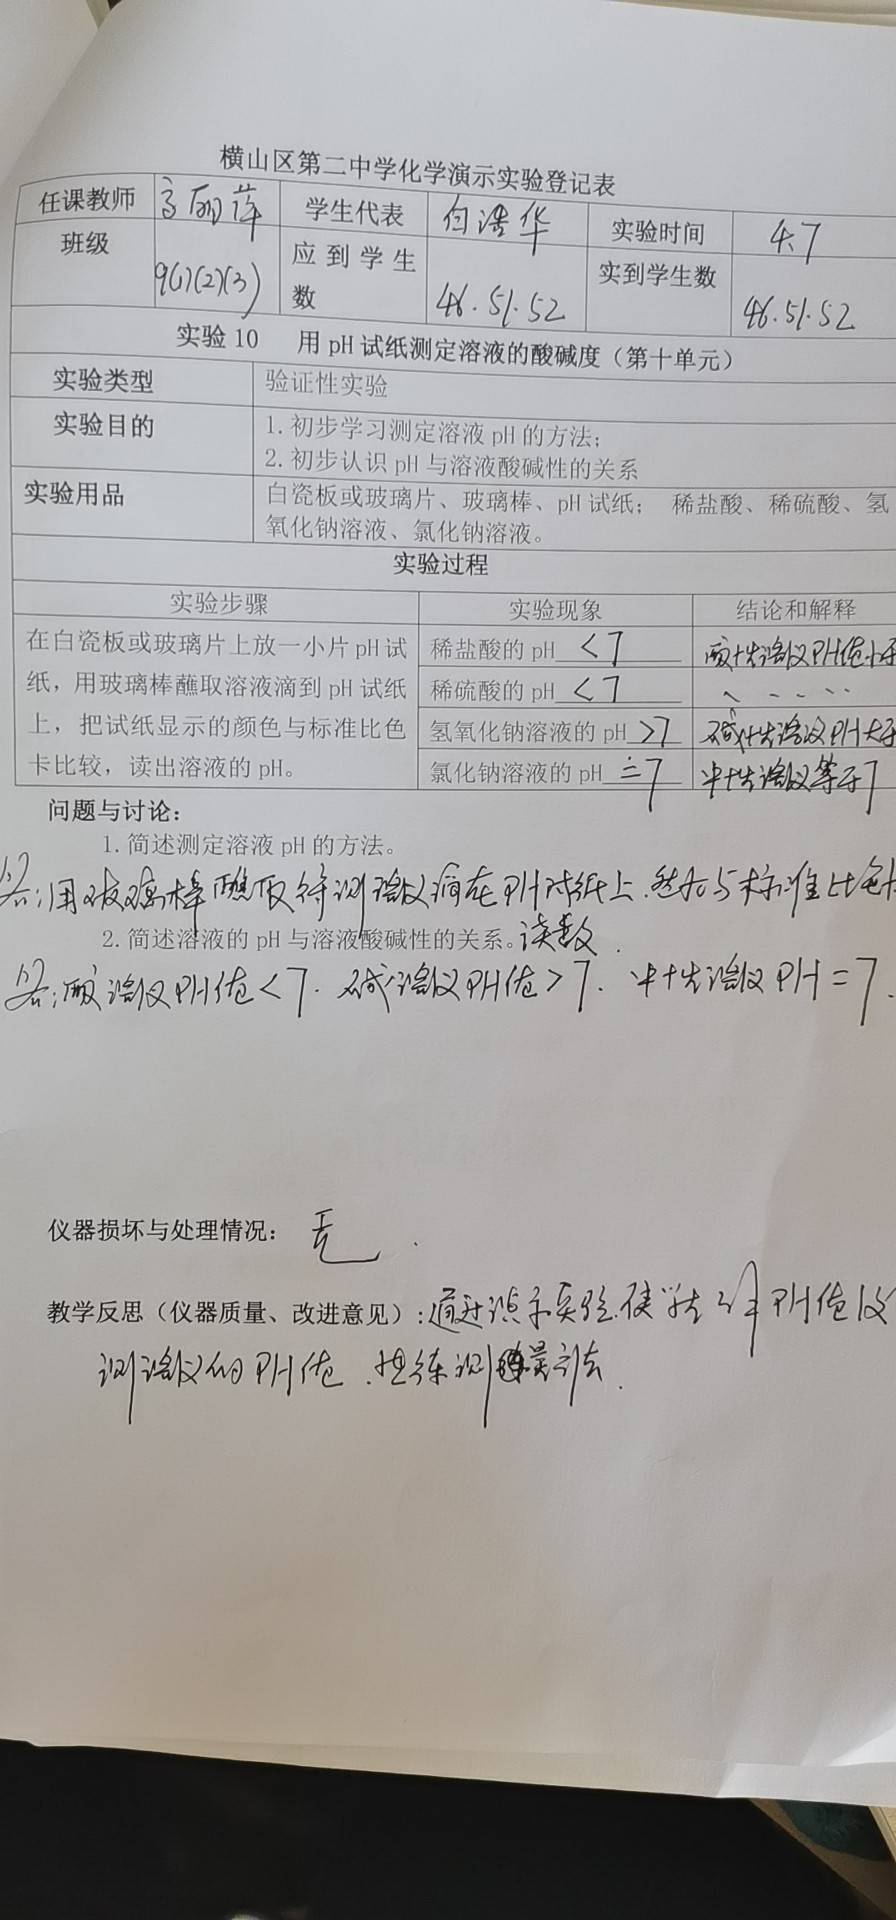 横山区第二中学化学演示实验登记表
任课教师 高丽萍 学生代表 白浩华 实验时间 4.7
班级 9(1)(2)(3) 应到学生数 46.51.52 实到学生数 46.51.52
实验10 用pH试纸测定溶液的酸碱度（第十单元）
实验类型 验证性实验
实验目的 1.初步学习测定溶液pH的方法；
2.初步认识pH与溶液酸碱性的关系
实验用品 白瓷板或玻璃片、玻璃棒、pH试纸； 稀盐酸、稀硫酸、氢
氧化钠溶液、氯化钠溶液。
实验过程
实验步骤 实验现象 结论和解释
在白瓷板或玻璃片上放一小片pH试
纸，用玻璃棒蘸取溶液滴到pH试纸
上，把试纸显示的颜色与标准比色
卡比较，读出溶液的pH。
稀盐酸的pH <7 酸性溶液PH值小于
稀硫酸的pH <7
氢氧化钠溶液的pH >7 碱性溶液PH大于
氯化钠溶液的pH =7 中性溶液等于7
问题与讨论：
1.简述测定溶液pH的方法。
答：用玻璃棒蘸取待测溶液滴在PH试纸上.然后与标准比色卡
2.简述溶液的pH与溶液酸碱性的关系。读数.
答：酸溶液PH值<7. 碱溶液PH值>7. 中性溶液PH=7.
仪器损坏与处理情况： 无.
教学反思（仪器质量、改进意见）：通过演示实验.使学生 PH值
测溶液的PH值. 测量方法.